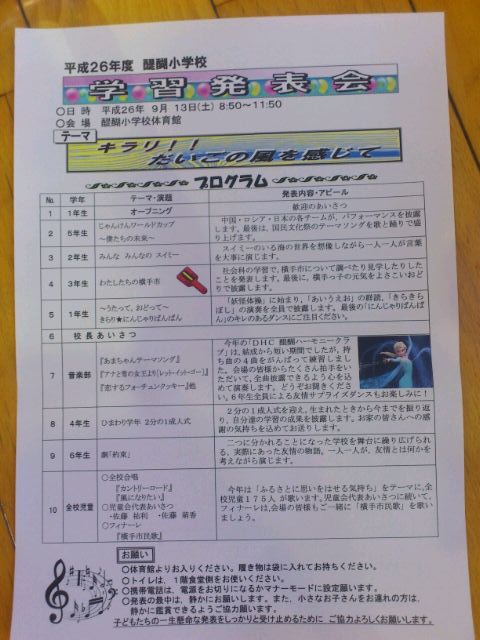 平成26年度 醍醐小学校
学習発表会
○日 時 平成26年 9月 13日(土) 8:50～11:50
○会 場 醍醐小学校体育館
テーマ
キラリ！！
だいごの風を感じて
プログラム
No. 学年 テーマ・演題 発表内容・アピール
1 1年生 オープニング 歓迎のあいさつ
2 5年生 じゃんけんワールドカップ
～僕たちの未来～
中国・ロシア・日本の各チームが、パフォーマンスを披露
します。最後は、国民文化祭のテーマソングを歌と踊りで盛
り上げます。
3 2年生 みんな みんなの スイミー
スイミーのいる海の世界を想像しながら一人一人が言葉
を大事に演じます。
4 3年生 わたしたちの横手市
社会科の学習で、横手市について調べたり見学したりした
ことを発表します。最後に、横手っ子の元気をよさこいおど
りで披露します。
5 1年生 ～うたって、おどって～
きらり★にんじゃりばんばん
「妖怪体操」に始まり、「あいうえお」の群読、「きらきら
ぼし」の演奏を全員で披露します。最後の「にんじゃりばんば
ん」のキレのあるダンスにご注目ください。
6 校長あいさつ
7 音楽部 『あまちゃんテーマソング』
『アナと雪の女王より(レット・イット・ゴー)』
『恋するフォーチュンクッキー』他
今年の「DHC 醍醐ハーモニークラ
ブ」は、結成から短い期間でしたが、持
ち曲の4曲をがんばって練習しまし
た。会場の皆様からたくさん拍手をい
ただいて、全曲披露できるよう心を込
めて演奏します。どうぞお聞きくださ
い。6年生全員による友情サプライズダンスもお楽しみに！
8 4年生 ひまわり学年 2分の1成人式
2分の1成人式を迎え、生まれたときから今までを振り返
り、自分達の学習の成果を披露します。お家の皆さんへの感
謝の気持ちを込めてお送りします。
9 6年生 劇「約束」
二つに分かれることになった学校を舞台に繰り広げられ
る、実際にあった友情の物語。一人一人が、友情とは何かを
考えながら演じます。
10 全校児童 ○全校合唱
『カントリーロード』
『風になりたい』
○児童会代表あいさつ
・佐藤 祐利 ・佐藤 萌香
○フィナーレ
『横手市民歌』
今年は「ふるさとに思いをはせる気持ち」をテーマに、全
校児童175人が歌います。児童会代表あいさつに続いて、
フィナーレは、会場の皆様もご一緒に「横手市民歌」を歌い
ましょう。
お願い
○体育館よりお入りください。履き物は袋に入れてお持ちください。
○トイレは、1階食堂側をお使いください。
○携帯電話は、電源をお切りになるかマナーモードに設定願います。
○発表の最中は、静かにお願いします。また、小さなお子さんをお連れの方は、
静かに鑑賞できるようご協力願います。
子どもたちの一生懸命な発表をしっかりと受け止めるために ご協力よろしくお願いします。